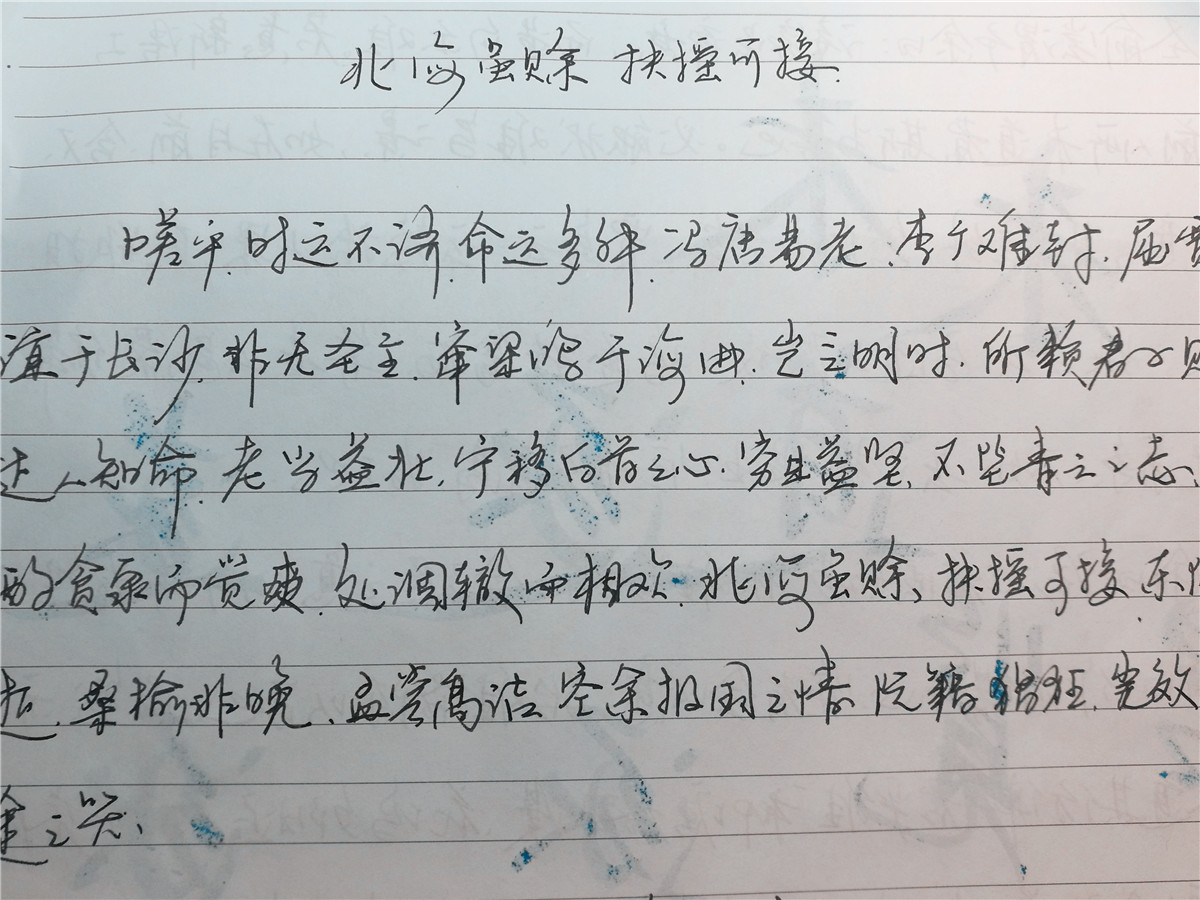 北海虽赊 扶摇可接.
嗟乎.时运不济.命运多舛.冯唐易老.李广难封.屈贾
谊于长沙.非无圣主.窜梁鸿于海曲.岂乏明时.所赖君子见
达人知命.老当益壮,宁移白首之心.穷且益坚,不坠青云之志、
酌贪泉而觉爽.处涸辙而相欢.北海虽赊、扶摇可接.东隅
逝.桑榆非晚、孟尝高洁 空余报国之情 阮籍猖狂.岂效
途之哭、